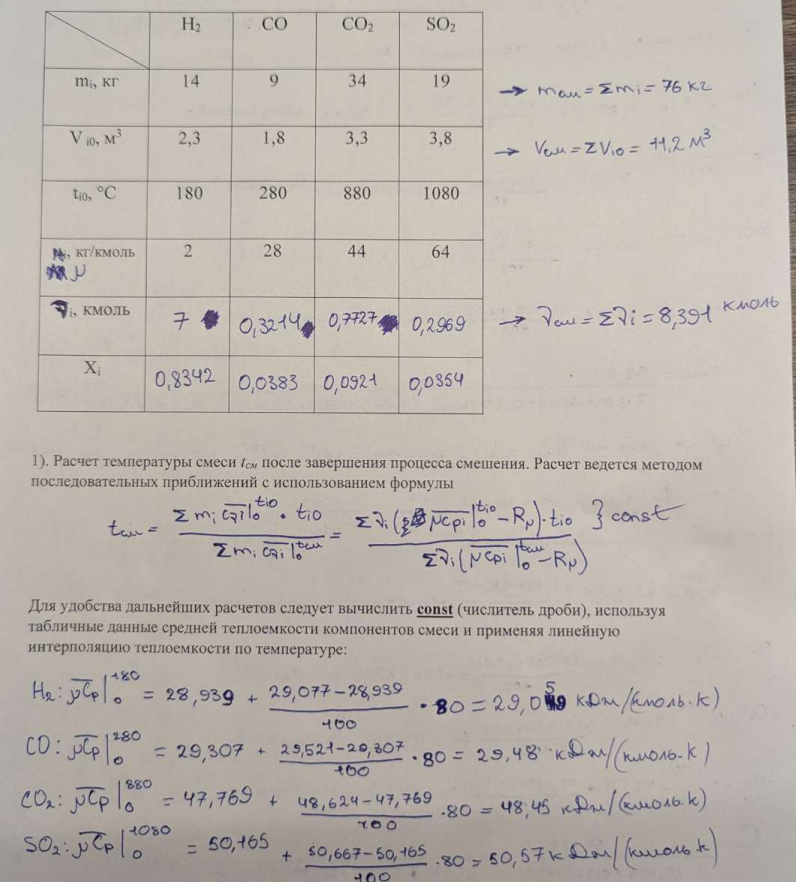 H₂ CO CO₂ SO₂
mᵢ, кг 14 9 34 19 → mсм = Σmᵢ = 76 кг
V i0, м³ 2,3 1,8 3,3 3,8 → Vсм = ΣVi0 = 11,2 м³
ti0, °C 180 280 880 1080
μ, кг/кмоль 2 28 44 64
νi, кмоль 7 0,3214 0,7727 0,2969 → νсм = Σνi = 8,391 кмоль
Xi 0,8342 0,0383 0,0921 0,0354
1). Расчет температуры смеси tсм после завершения процесса смешения. Расчет ведется методом
последовательных приближений с использованием формулы
tсм = (Σ mi c̄νi|₀^ti0 · ti0) / (Σ mi c̄νi|₀^tсм) = (Σνi(μc̄pi|₀^ti0 − Rμ)·ti0) / (Σνi(μc̄pi|₀^tсм − Rμ)) } const
Для удобства дальнейших расчетов следует вычислить const (числитель дроби), используя
табличные данные средней теплоемкости компонентов смеси и применяя линейную
интерполяцию теплоемкости по температуре:
H₂: μc̄p|₀^180 = 28,939 + (29,077−28,939)/100 · 80 = 29,05 кДж/(кмоль·к)
CO: μc̄p|₀^280 = 29,307 + (29,521−29,307)/100 · 80 = 29,48 кДж/(кмоль·к)
CO₂: μc̄p|₀^880 = 47,769 + (48,624−47,769)/100 · 80 = 48,45 кДж/(кмоль·к)
SO₂: μc̄p|₀^1080 = 50,165 + (50,667−50,165)/100 · 80 = 50,57 кДж/(кмоль·к)